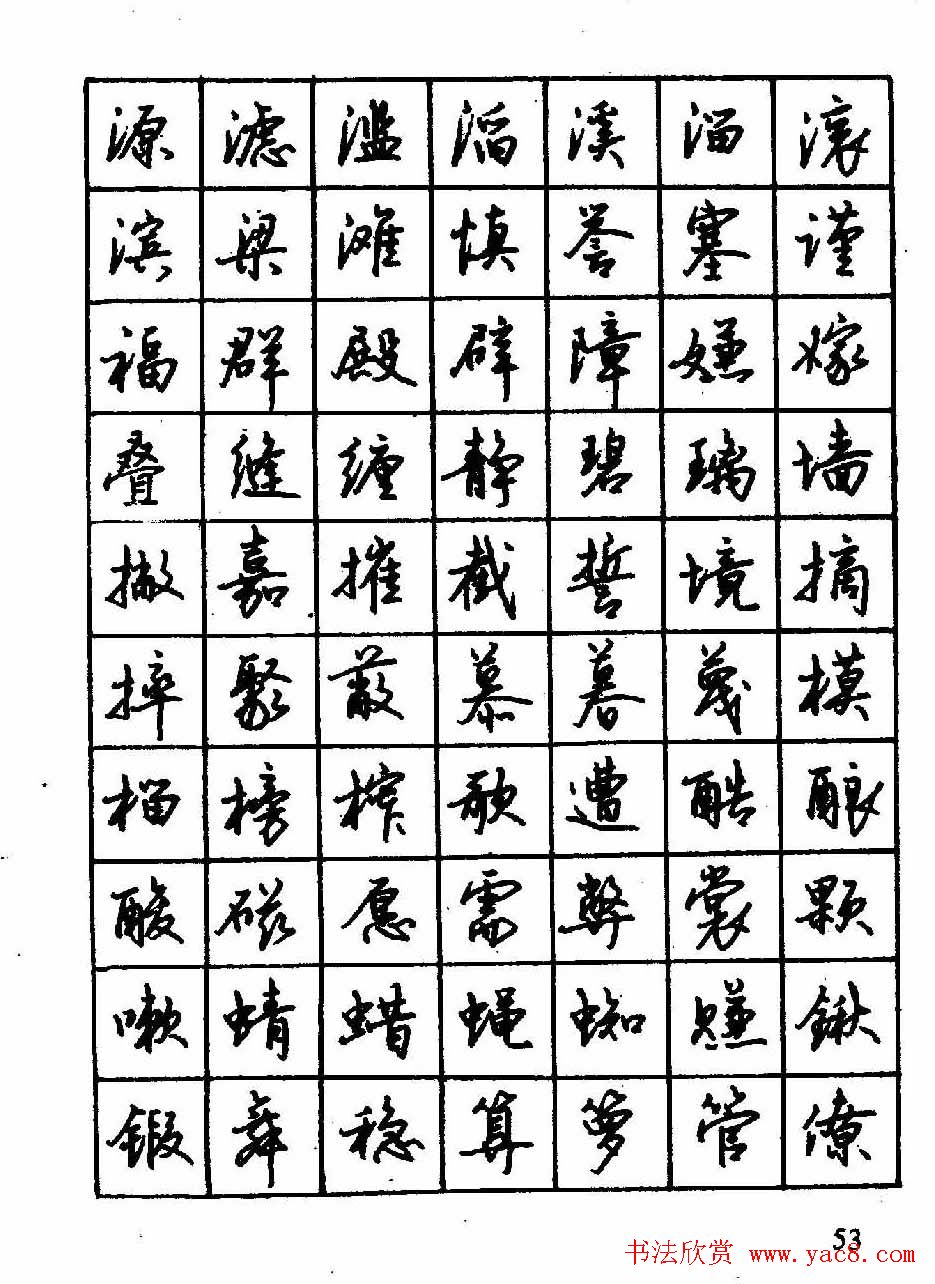 源滤滥滔溪溜滚
滨粱滩慎誉塞谨
福群殿辟障嫌嫁
叠缝缠静碧璃墙
撇嘉摧截誓境摘
摔聚蔽慕暮蔑模
榴榜榨歌遭酷酿
酸磁愿需弊裳颗
嗽蜻蜡蝇蜘赚锹
锻舞稳算箩管僚
53
书法欣赏 www.yac8.com